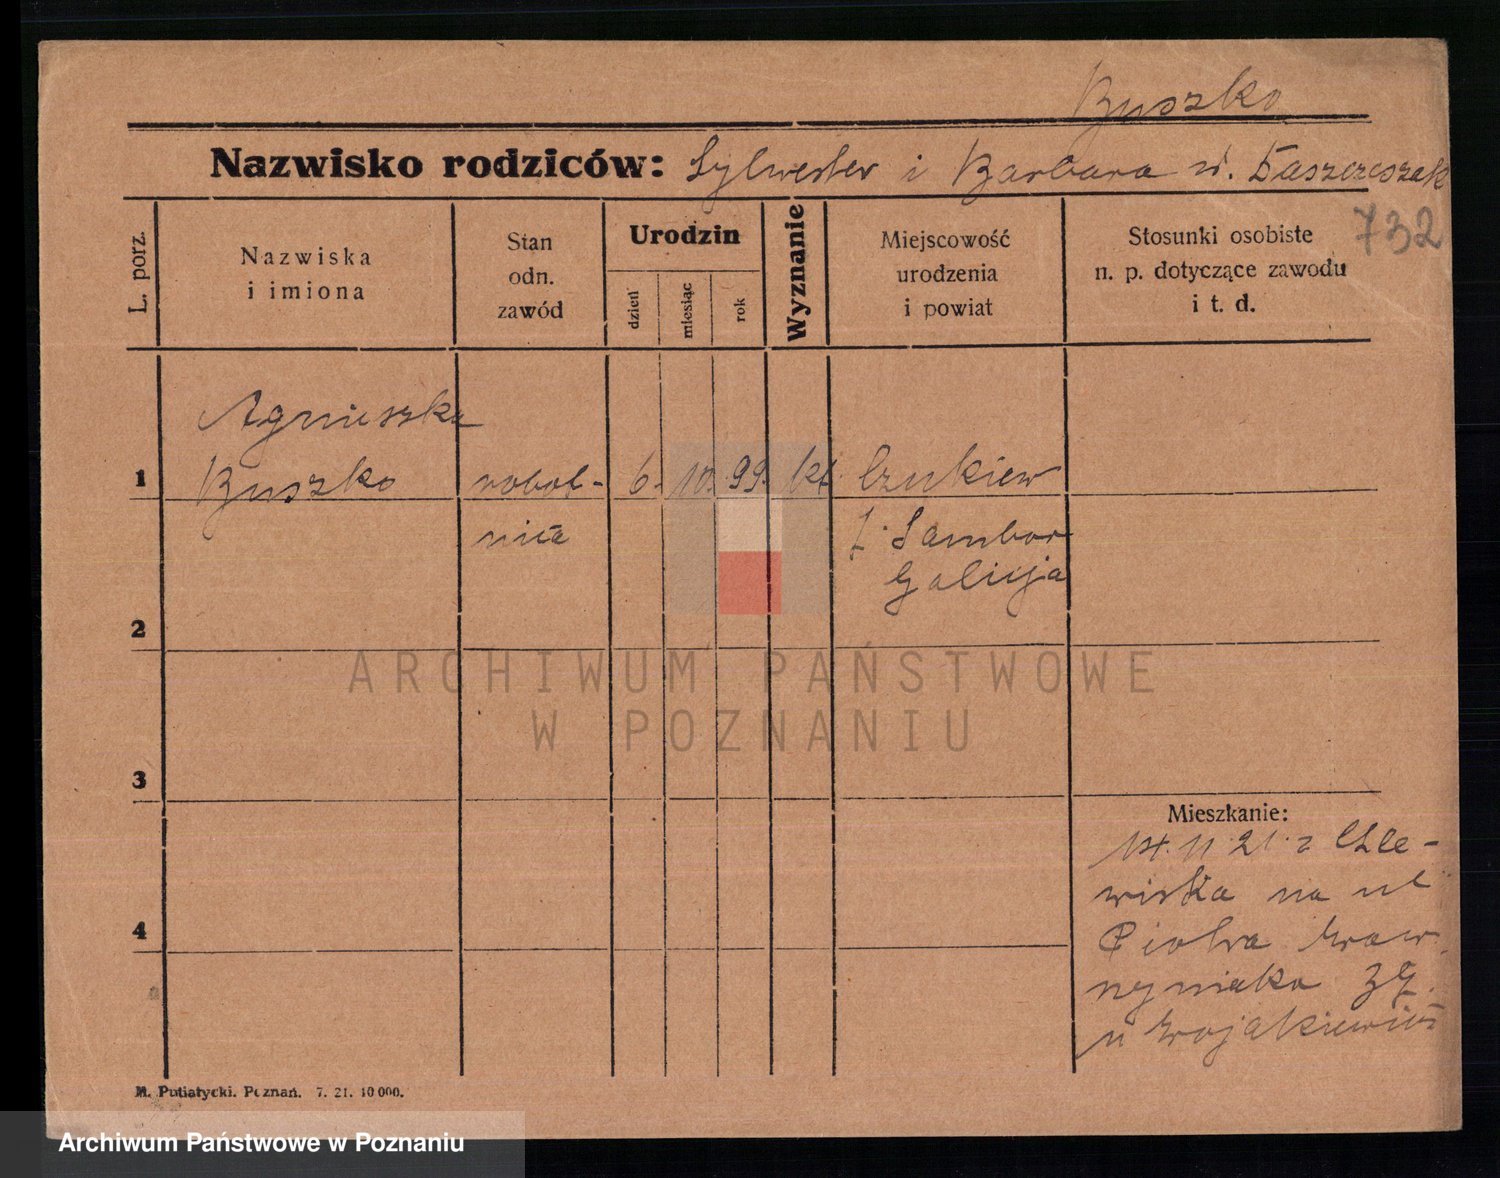 Buszko
Nazwisko rodziców: Sylwester i Barbara z d. Łaszczeszak
732
L. porz.
Nazwiska
i imiona
Stan
odn.
zawód
Urodzin
dzień
miesiąc
rok
Wyznanie
Miejscowość
urodzenia
i powiat
Stosunki osobiste
n. p. dotyczące zawodu
i t. d.
Agnieszka
1 Buszko robot- 6. 10. 99. kt. Czukiew
nica
p. Sambor
Galicja
2
3
4
Mieszkanie:
14. 11. 21. z Chle-
wiska na ul
Piotra Waw-
rzyniaka
u Wojakiewicz
M. Putiatycki. Poznań. 7. 21. 10 000.
ARCHIWUM PAŃSTWOWE
W POZNANIU
Archiwum Państwowe w Poznaniu